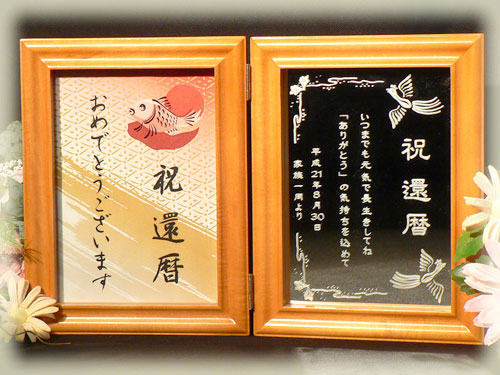 祝還暦
おめでとうございます
祝還暦
いつまでも元気で長生きしてね
「ありがとう」の気持ちを込めて
平成21年8月30日
家族一同より